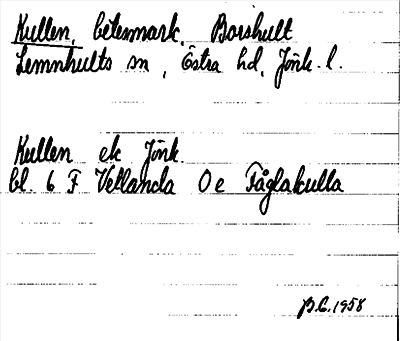 Kullen, betesmark, Borshult
Lemnhults sn, Östra hd, Jönk. l.
Kullen ek Jönk.
bl. 6 F Vetlanda O e Fåglakulla
B.E. 1958